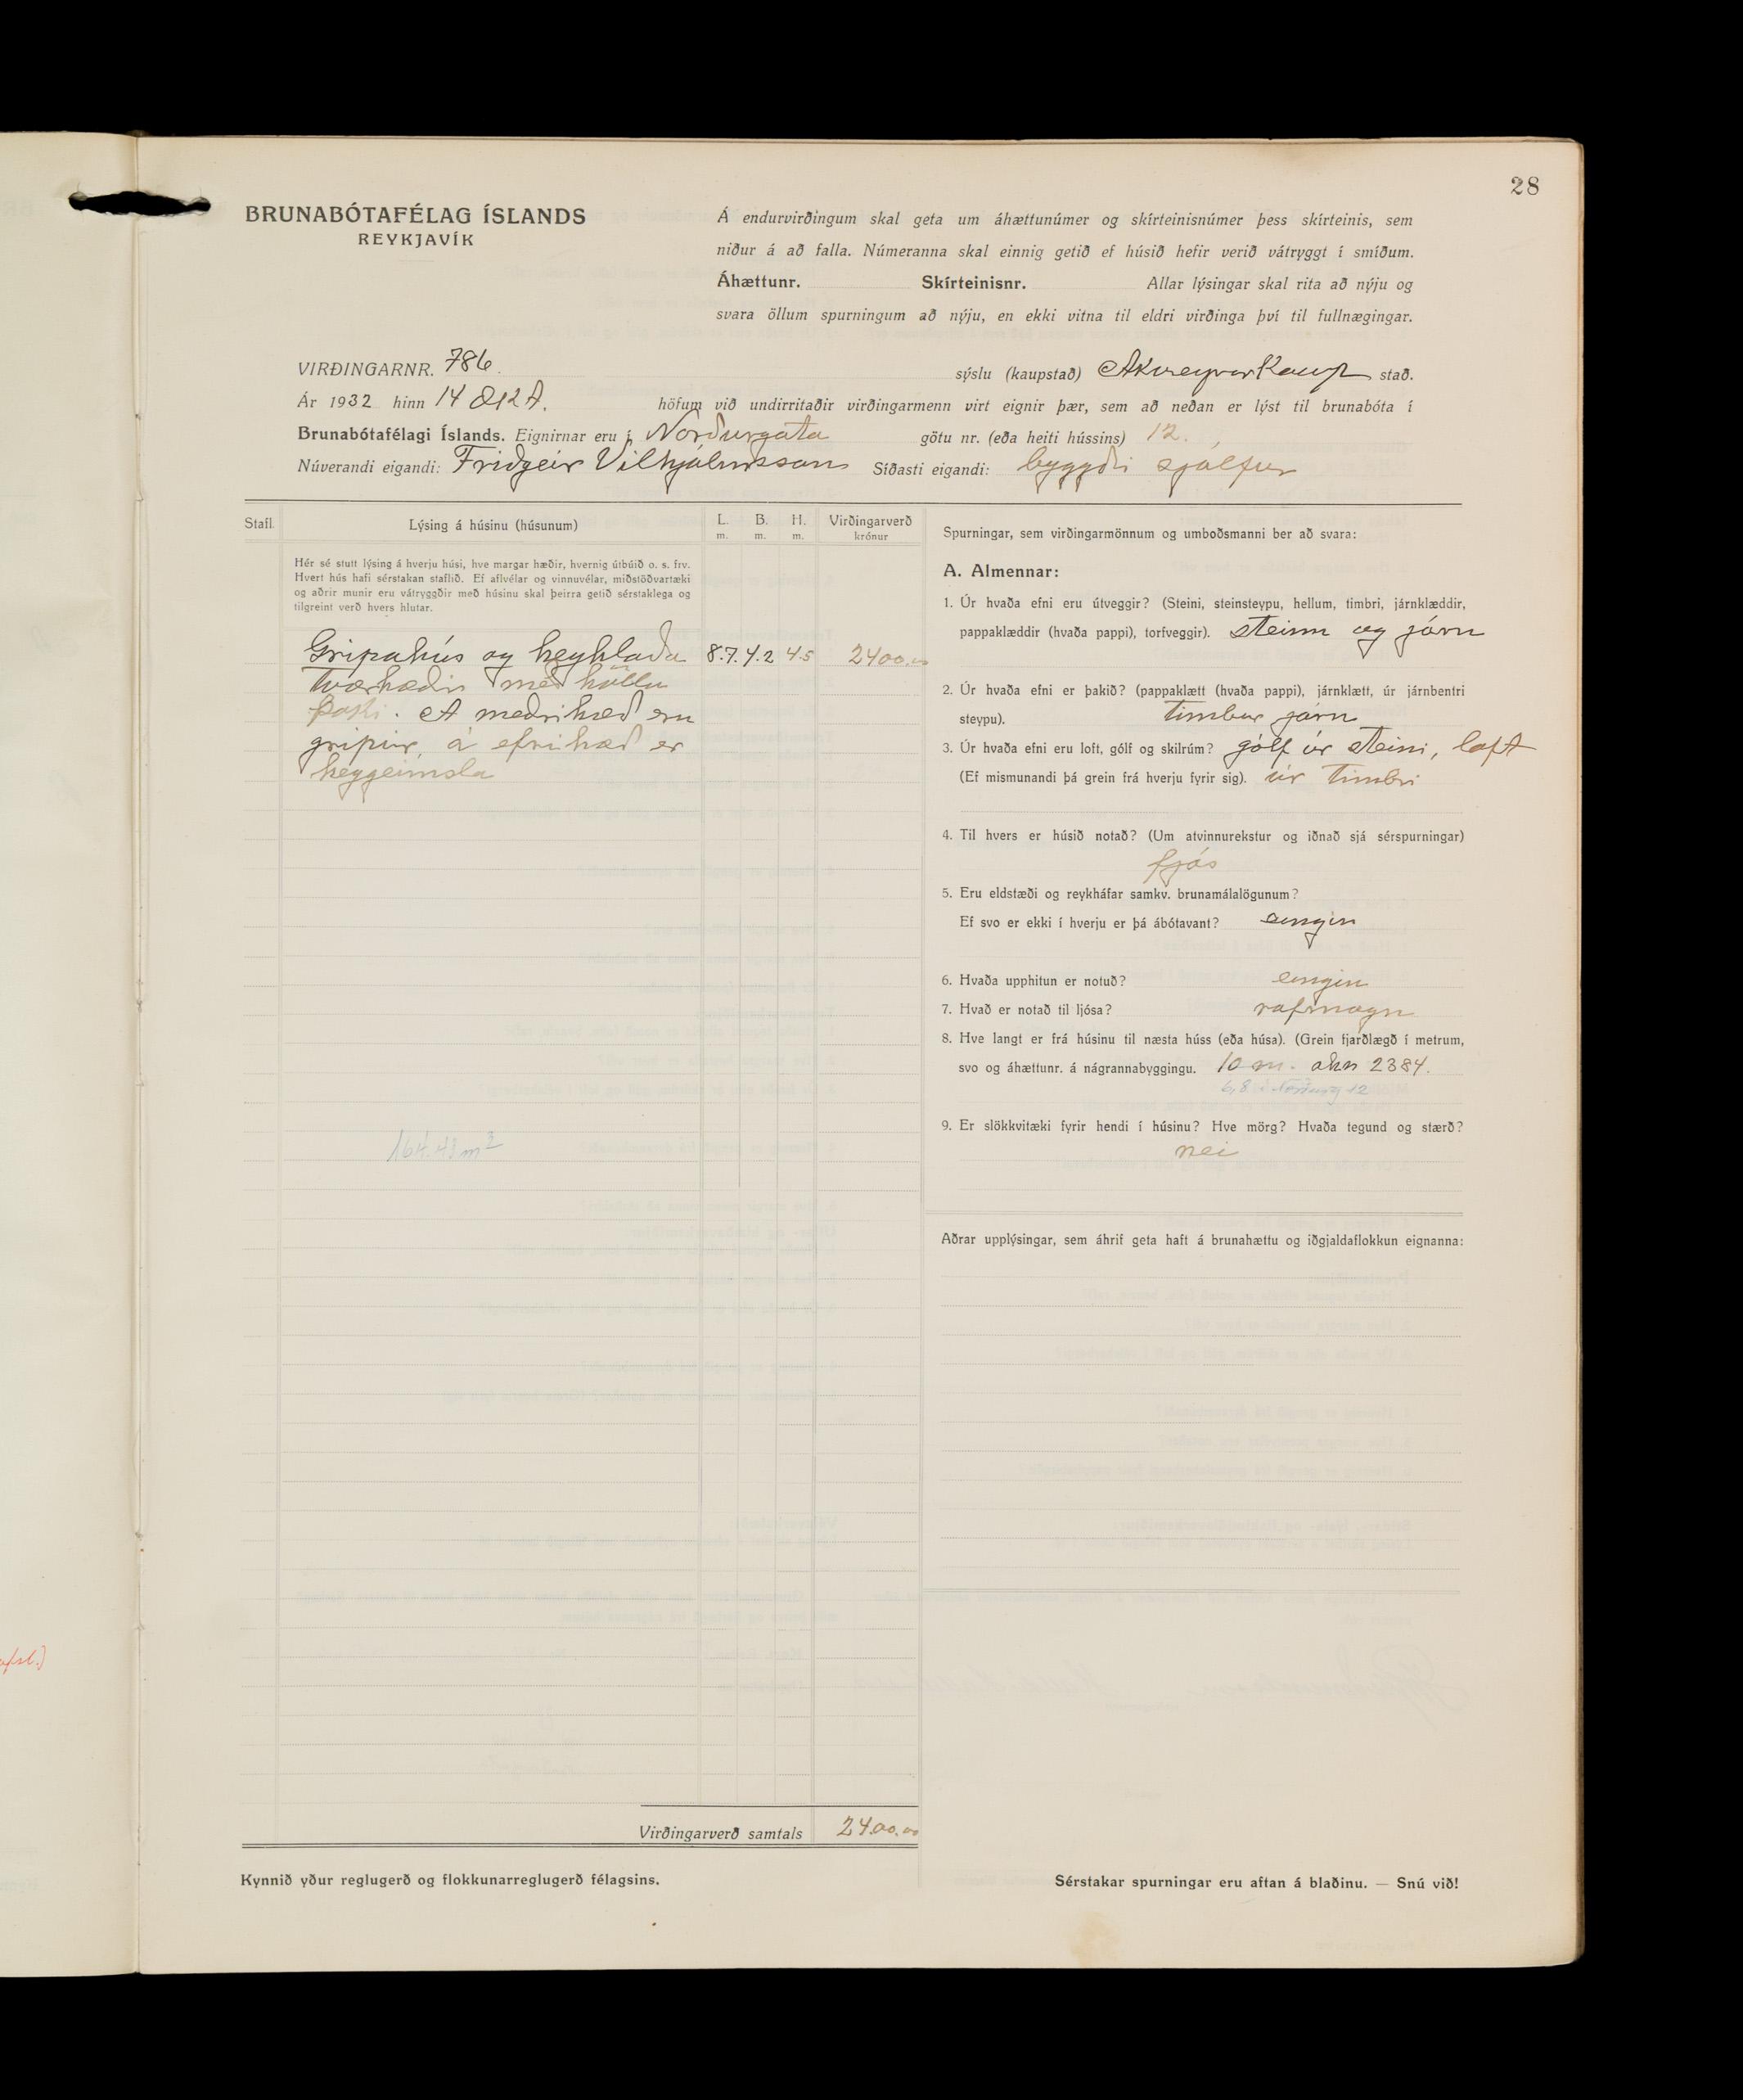 28
BRUNABÓTAFÉLAG ÍSLANDS
REYKJAVÍK
Á endurvirðingum skal geta um áhættunúmer og skírteinisnúmer þess skírteinis, sem
niður á að falla. Númeranna skal einnig getið ef húsið hefir verið vátryggt í smíðum.
Áhættunr. Skírteinisnr. Allar lýsingar skal rita að nýju og
svara öllum spurningum að nýju, en ekki vitna til eldri virðinga því til fullnægingar.
VIRÐINGARNR. 786. sýslu (kaupstað) Akureyrarkaup stað.
Ár 1932 hinn 14 okt. höfum við undirritaðir virðingarmenn virt eignir þær, sem að neðan er lýst til brunabóta í
Brunabótafélagi Íslands. Eignirnar eru í Norðurgata götu nr. (eða heiti hússins) 12.
Núverandi eigandi: Friðgeir Vilhjálmsson Síðasti eigandi: byggði sjálfur
Stafl. Lýsing á húsinu (húsunum) L. m. B. m. H. m. Virðingarverð krónur
Hér sé stutt lýsing á hverju húsi, hve margar hæðir, hvernig útbúið o. s. frv.
Hvert hús hafi sérstakan staflið. Ef aflvélar og vinnuvélar, miðstöðvartæki
og aðrir munir eru vátryggðir með húsinu skal þeirra getið sérstaklega og
tilgreint verð hvers hlutar.
Gripahús og heyhlaða 8.7. 4.2 4.5 2400.00
Tværhæðir með hallu
þaki. Á neðrihæð eru
gripir, á efrihæð er
heygeimsla
164.43 m³
Virðingarverð samtals 2400.00
Spurningar, sem virðingarmönnum og umboðsmanni ber að svara:
A. Almennar:
1. Úr hvaða efni eru útveggir? (Steini, steinsteypu, hellum, timbri, járnklæddir,
pappaklæddir (hvaða pappi), torfveggir). steinn og járn
2. Úr hvaða efni er þakið? (pappaklætt (hvaða pappi), járnklætt, úr járnbentri
steypu). timbur járn
3. Úr hvaða efni eru loft, gólf og skilrúm? gólf úr steini, loft
(Ef mismunandi þá grein frá hverju fyrir sig). úr timbri
4. Til hvers er húsið notað? (Um atvinnurekstur og iðnað sjá sérspurningar)
fjós
5. Eru eldstæði og reykháfar samkv. brunamálalögunum?
Ef svo er ekki í hverju er þá ábótavant? eingin
6. Hvaða upphitun er notuð? eingin
7. Hvað er notað til ljósa? rafmagn
8. Hve langt er frá húsinu til næsta húss (eða húsa). (Grein fjarðlægð í metrum,
svo og áhættunr. á nágrannabyggingu. 10 m. ahn 2384.
6,8 í Norðurg 12
9. Er slökkvitæki fyrir hendi í húsinu? Hve mörg? Hvaða tegund og stærð?
nei
Aðrar upplýsingar, sem áhrif geta haft á brunahættu og iðgjaldaflokkun eignanna:
Kynnið yður reglugerð og flokkunarreglugerð félagsins.
Sérstakar spurningar eru aftan á blaðinu. — Snú við!